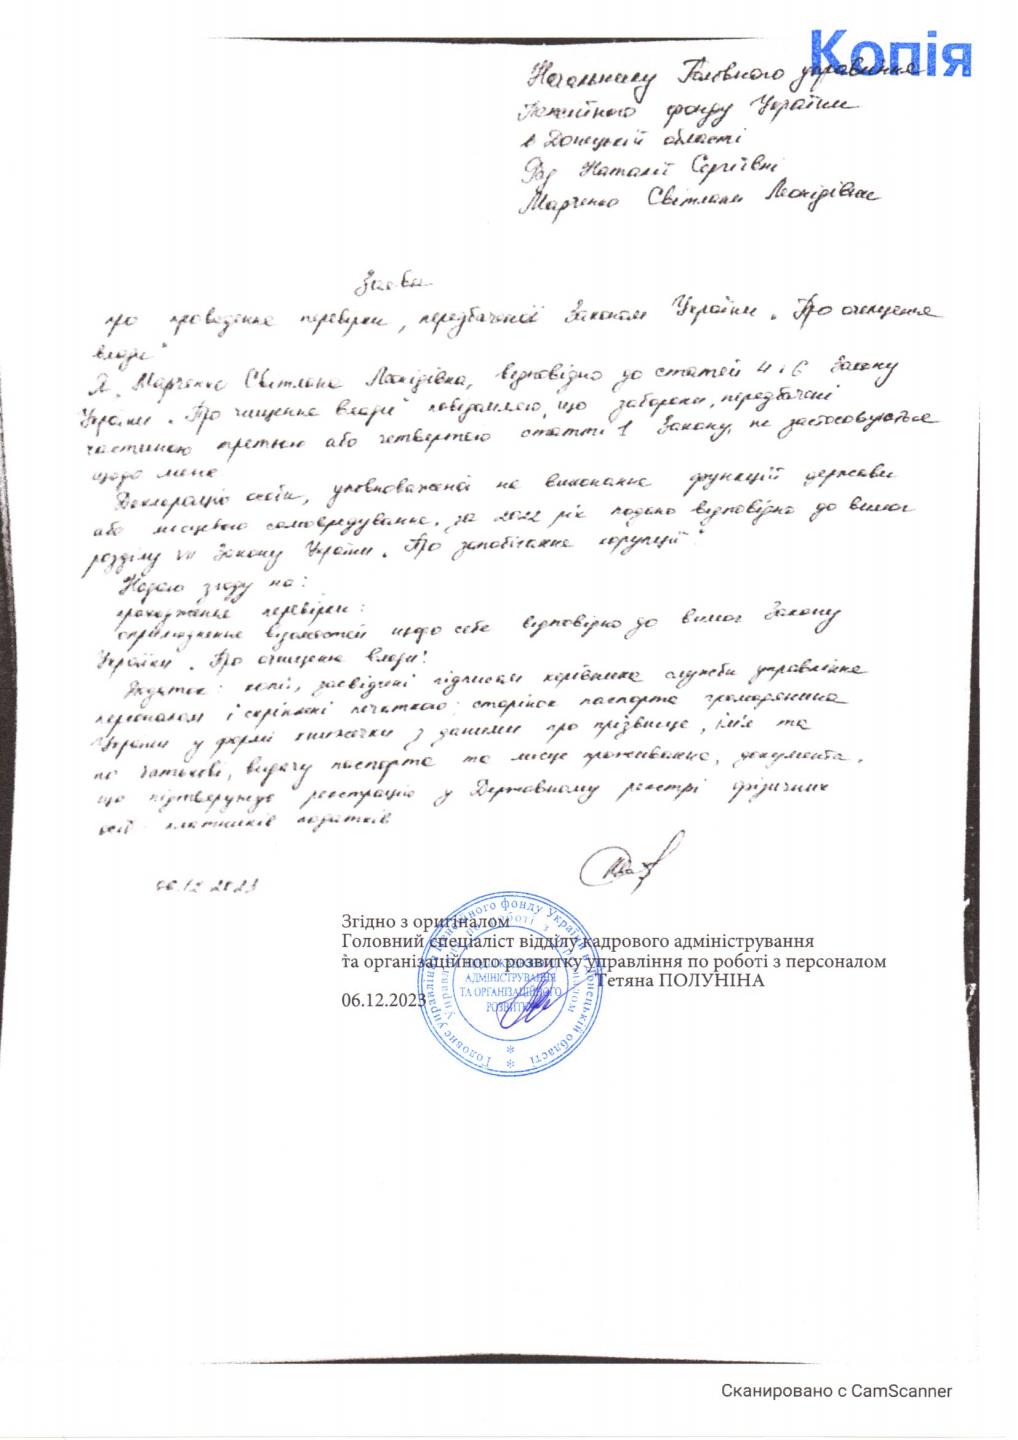 Копія
Начальнику Головного управління
Пенсійного фонду України
в Донецькій області
Рад Наталії Сергіївні
Марченко Світлани Леонідівни
Заява
про проведення перевірки, передбаченої Законом України „Про очищення
влади"
Я, Марченко Світлана Леонідівна, відповідно до статей 4 і 6 Закону
України „Про очищення влади" повідомляю, що заборони, передбачені
частиною третьою або четвертою статті 1 Закону, не застосовуються
щодо мене
Декларацію особи, уповноваженої на виконання функцій держави
або місцевого самоврядування, за 2022 рік подано відповідно до вимог
розділу VII Закону України „Про запобігання корупції".
Надаю згоду на:
проходження перевірки;
оприлюднення відомостей щодо себе відповідно до вимог Закону
України „Про очищення влади".
Додаток: копії, засвідчені підписом керівника служби управління
персоналом і скріплені печаткою: сторінок паспорта громадянина
України у формі книжечки з даними про прізвище, ім'я та
по батькові, видачу паспорта та місце проживання, документа,
що підтверджує реєстрацію у Державному реєстрі фізичних
осіб платників податків
06.12.2023
Згідно з оригіналом
Головний спеціаліст відділу кадрового адміністрування
та організаційного розвитку управління по роботі з персоналом
Тетяна ПОЛУНІНА
06.12.2023
Головне управління Пенсійного фонду України в Донецькій області
Управління по роботі з персоналом
АДМІНІСТРУВАННЯ
ТА ОРГАНІЗАЦІЙНОГО
РОЗВИТКУ
Сканировано с CamScanner